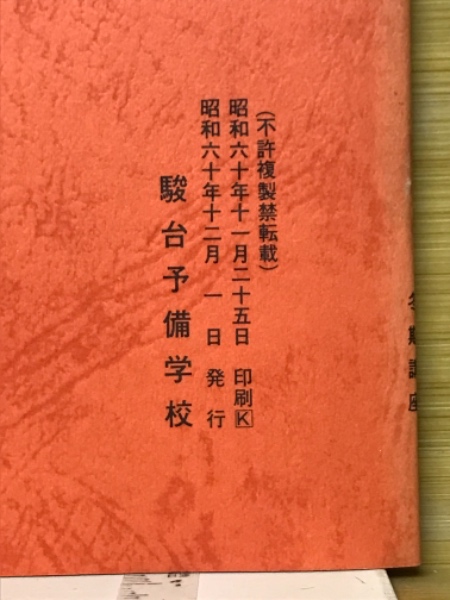 (不許複製禁転載)
昭和六十年十一月二十五日 印刷K
昭和六十年十二月 一 日 発 行
駿台予備学校
冬期講座